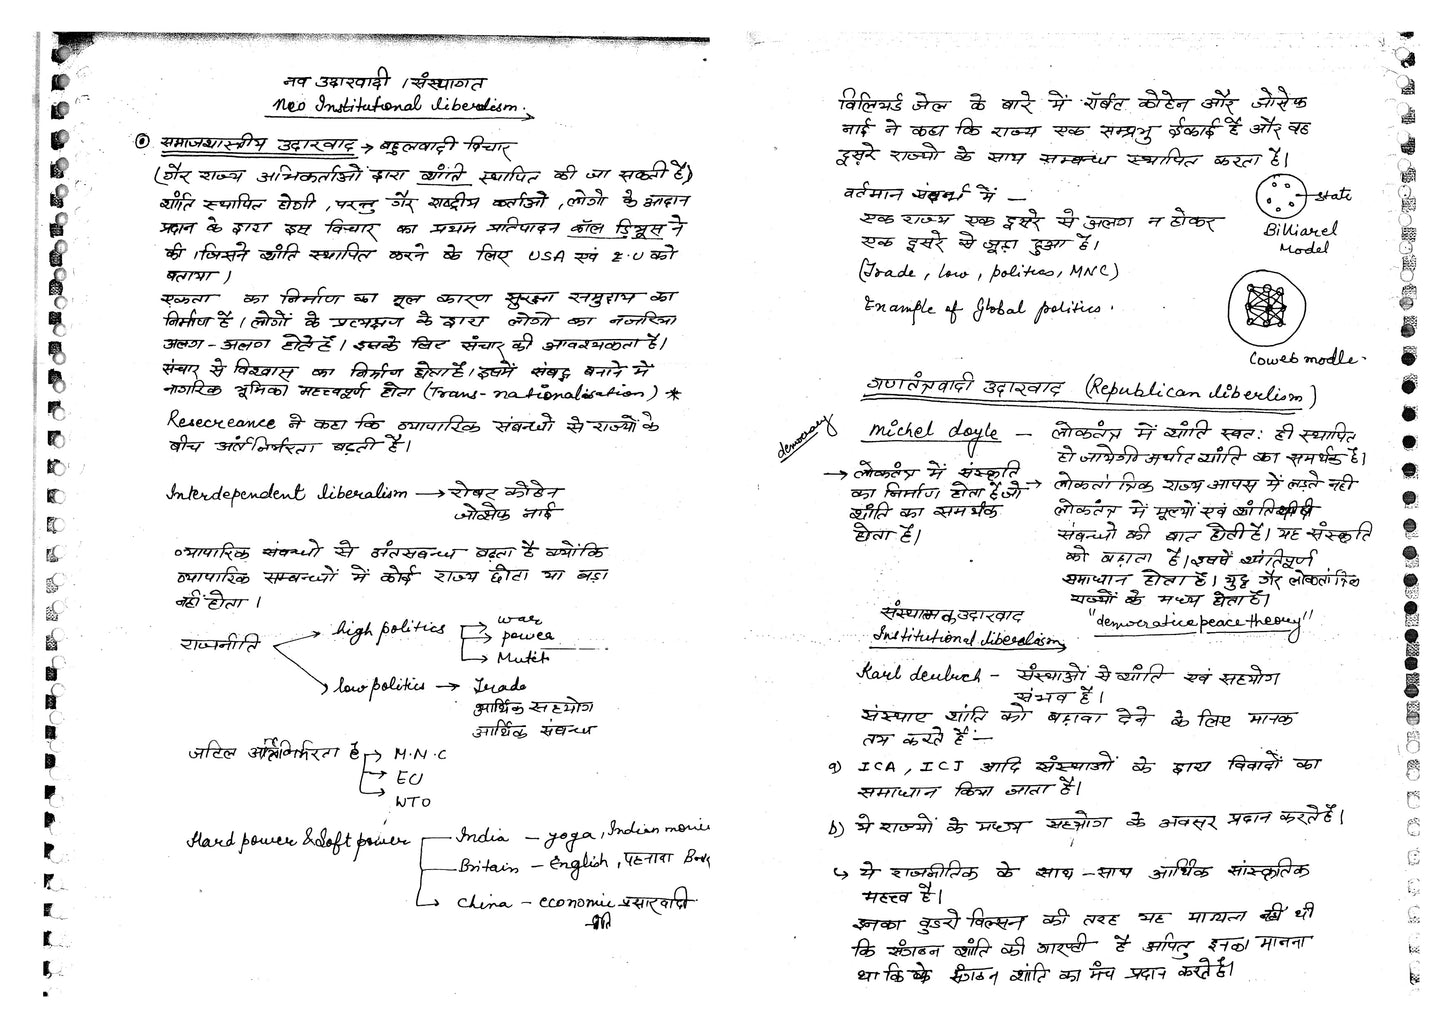 नव उदारवादी / संस्थागत
Neo Institutional liberalism.
समाजशास्त्रीय उदारवाद → बहुलवादी विचार
(गैर राज्य अभिकर्ताओं द्वारा शांति स्थापित की जा सकती है)
शांति स्थापित होगी, परन्तु गैर राष्ट्रीय कर्ताओं, लोगो के आदान
प्रदान के द्वारा इस विचार का प्रथम प्रतिपादन कॉल डियूस ने
की। जिसने शांति स्थापित करने के लिए USA एवं E.U को
बताया।
एकता का निर्माण का मूल कारण सुरक्षा समुदाय का
निर्माण है। लोगों के प्रत्यक्षण के द्वारा लोगो का नजरिया
अलग-अलग होते हैं। इसके लिए संचार की आवश्यकता है।
संचार से विश्वास का निर्माण होता है। इसमें संबद्ध बनाने मे
नागरिक भूमिका महत्वपूर्ण होता (Trans-nationalisation) *
Resecreance ने कहा कि व्यापारिक संबन्धो से राज्यों के
बीच अंर्तनिर्भरता बढ़ती है।
Interdependent liberalism → रोबर्ट कोहेन
जोसेफ नाई
व्यापारिक संबन्धो से अंतसबन्ध बढ़ता है क्योंकि
व्यापारिक सम्बन्धों में कोई राज्य छोटा या बड़ा
नहीं होता।
राजनीति
high politics → war
→ power
→
low politics → Trade
आर्थिक सहयोग
आर्थिक संबन्ध
जटिल अर्तनिर्भरता है → M.N.C
→ EU
→ WTO
Hard power & Soft power
India - yoga, Indian movie
Britain - English, पहनावा
China - economic प्रसारवादी
विलियर्ड जेल के बारे में रॉर्बट कोहेन और जोसेफ
नाई ने कहा कि राज्य एक सम्प्रभु ईकाई है और वह
दूसरे राज्यो के साथ सम्बन्ध स्थापित करता है।
→ state
Billiarel
Model
वर्तमान संदर्भ में -
एक राज्य एक दूसरे से अलग न होकर
एक दूसरे से जूड़ा हुआ है।
(Trade, law, politics, MNC)
Example of Global politics.
Coweb modle.
गणतंत्रवादी उदारवाद (Republican liberlism)
democracy
Michel doyle - लोकतंत्र में शांति स्वतः ही स्थापित
हो जायेगी अर्थात शांति का समर्थक है।
→ लोकतंत्र में संस्कृति
का निर्माण होता है जो
शांति का समर्थक
होता है।
→ लोकतांत्रिक राज्य आपस में लड़ते नही
लोकतंत्र में मूल्यो एवं शांति
संबन्धो की बात होती है। यह संस्कृति
को बढ़ाता है। इसमें शांतिपूर्ण
समाधान होता है। युद्ध गैर लोकतांत्रिक
राज्यों के मध्य होता है।
"democratice peace theory"
संस्थात्मक उदारवाद
Institutional liberalism
Karl deutuch - संस्थाओं से शांति एवं सहयोग
संभव है।
संस्थाए शांति को बढ़ावा देने के लिए मानक
तय करते हैं:-
a) ICA, ICJ आदि संस्थाओं के द्वारा विवादों का
समाधान किया जाता है।
b) ये राज्यों के मध्य सहयोग के अवसर प्रदान करते हैं।
↳ ये राजनीतिक के साथ-साथ आर्थिक सांस्कृतिक
महत्व है।
इनका वुडरो विल्सन की तरह यह मान्यता नहीं थी
कि संगठन शांति की गारण्टी है अपितु इनका मानना
था कि संगठन शांति का मंच प्रदान करते है।